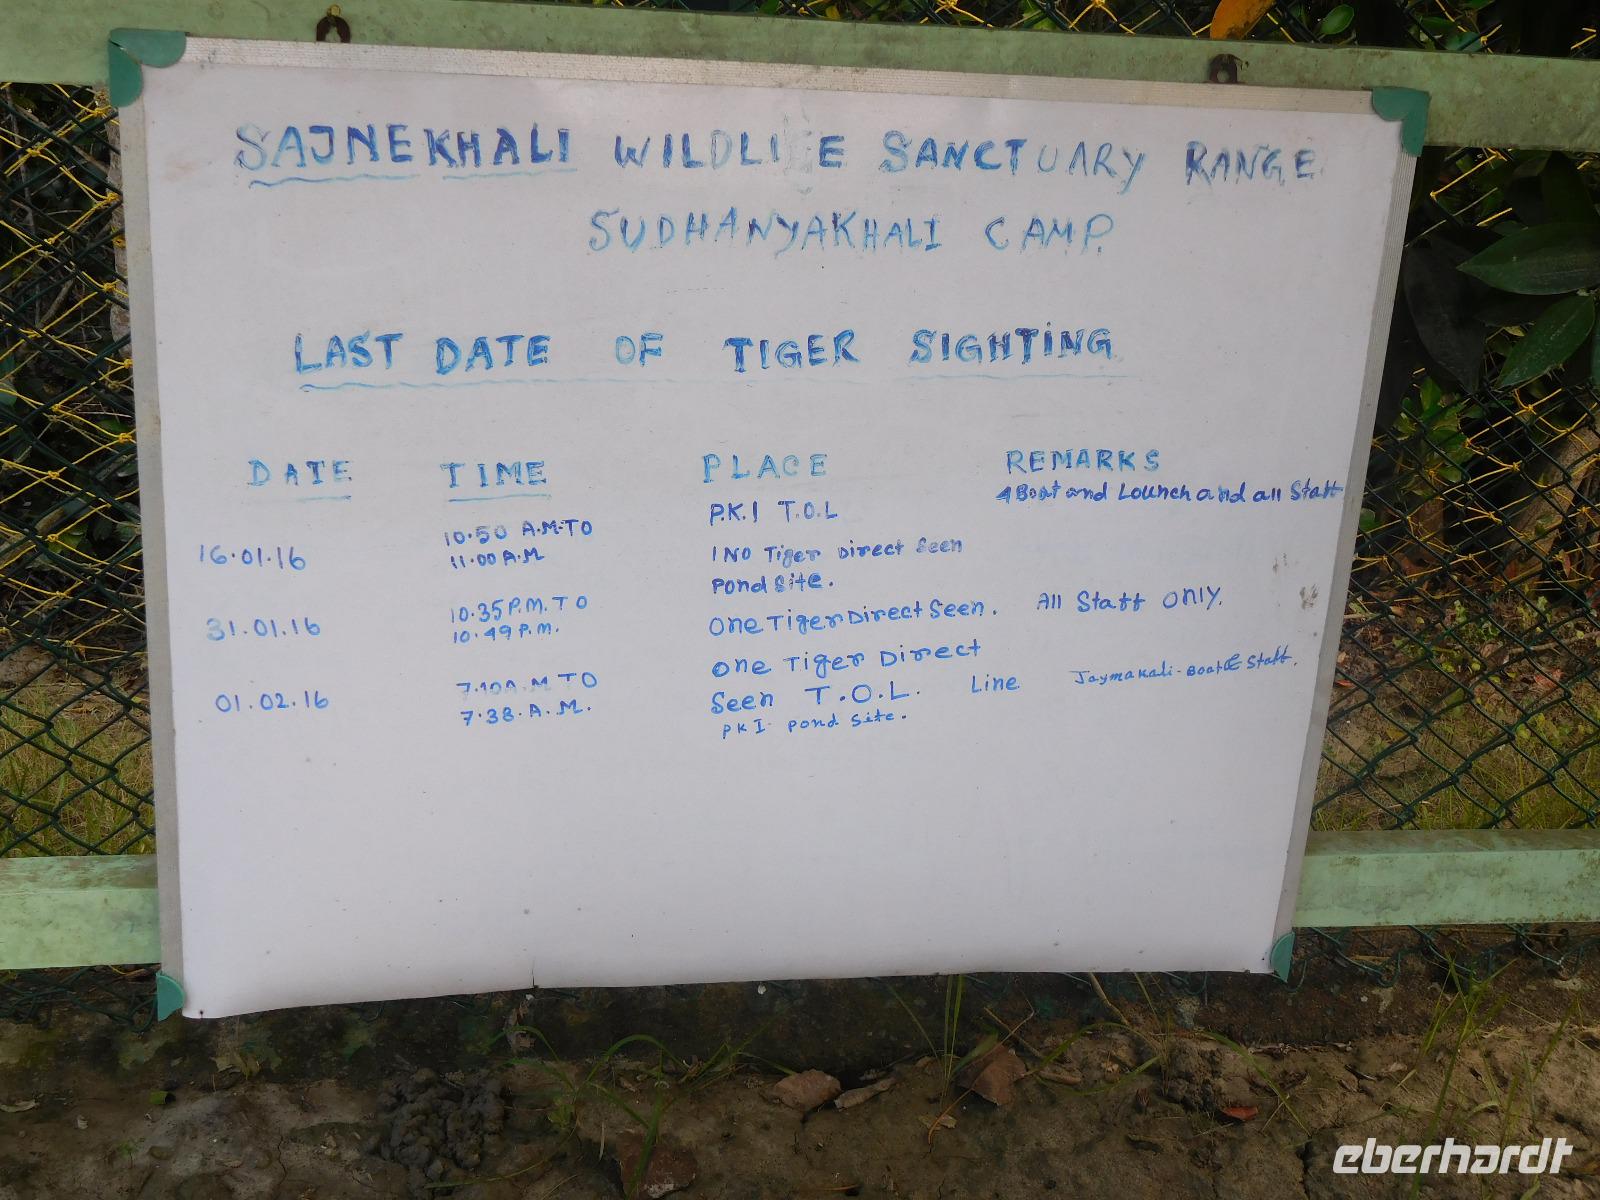 SAJNEKHALI WILDLI E SANCTUARY RANGE
SUDHANYAKHALI CAMP.
LAST DATE OF TIGER SIGHTING
DATE TIME PLACE REMARKS
16.01.16 10.50 A.M.TO 11.00 A.M P.K.1 T.O.L 4 Boat and Lounch and all Staff
1 NO Tiger Direct Seen
Pond Site.
31.01.16 10.35 P.M. TO 10.49 P.M. One Tiger Direct Seen. All Staff Only.
01.02.16 7.10 A.M TO 7.38. A.M. One Tiger Direct
Seen T.O.L. Line Jaymakali-Boat & Staff.
PKI Pond Site.
eberhardt